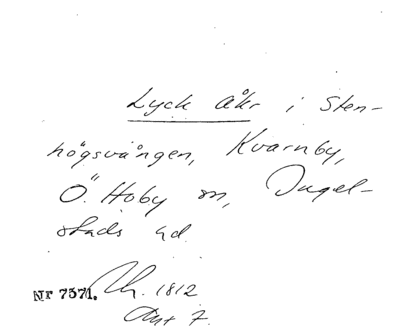 Lyck åkr i Sten-
högsvången, Kvarnby,
Ö. Hoby sn, Ingel-
stads hd.
Nr 7371. Lh. 1812
Akt 7.